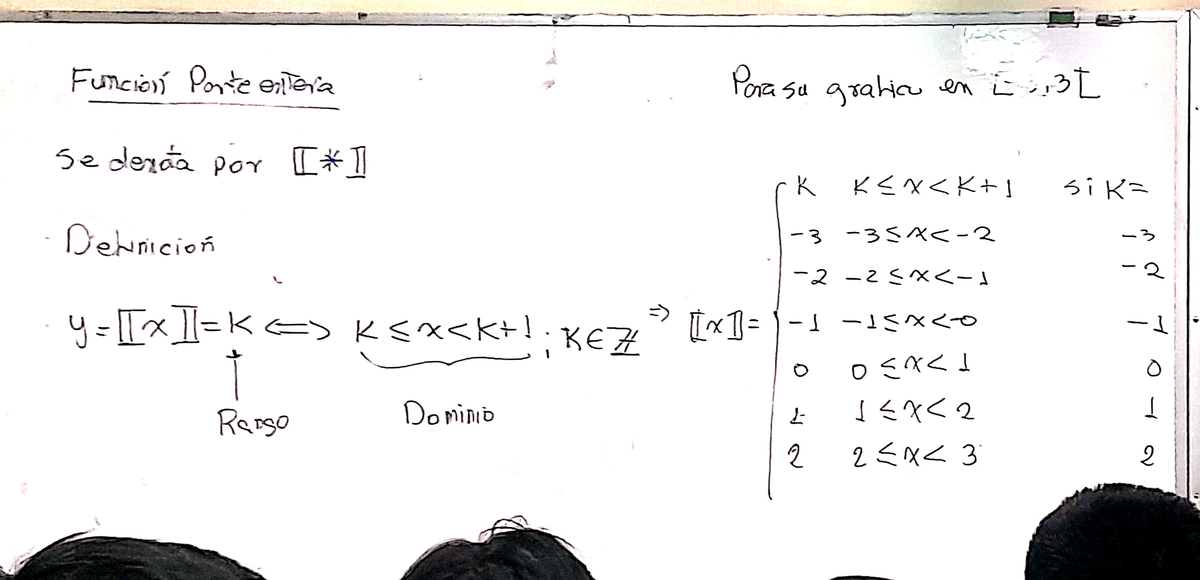 Función Parte entera
Se denota por ⟦*⟧
Definición
y = ⟦x⟧ = K ⟺ K ≤ x < K+1 ; K ∈ ℤ
Rango
Dominio
Para su grafica en ,3[
⇒ ⟦x⟧ =
K K ≤ x < K+1 si K =
-3 -3 ≤ x < -2 -3
-2 -2 ≤ x < -1 -2
-1 -1 ≤ x < 0 -1
0 0 ≤ x < 1 0
1 1 ≤ x < 2 1
2 2 ≤ x < 3 2